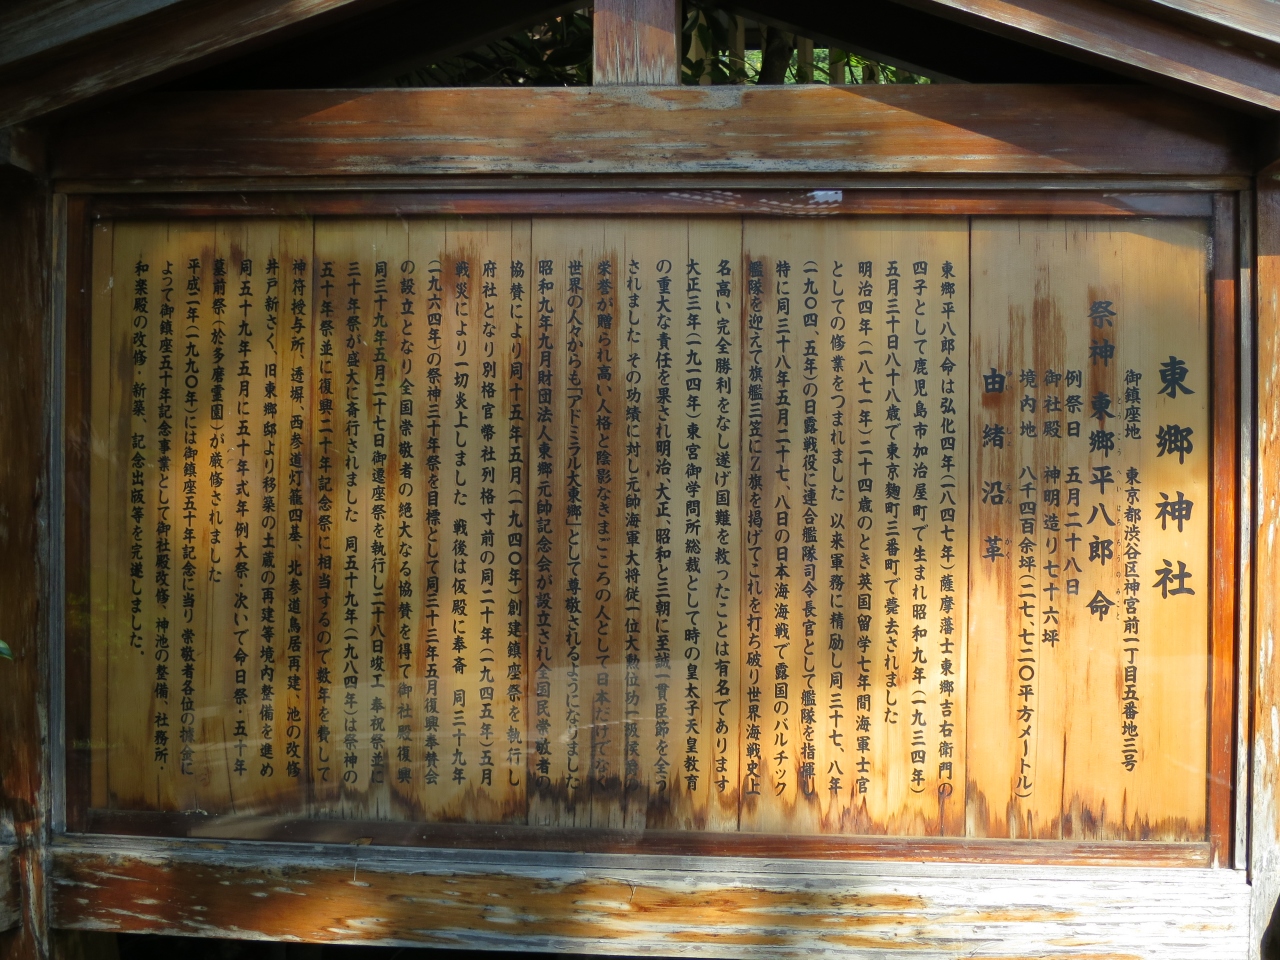 東郷神社
御鎮座地 東京都渋谷区神宮前一丁目五番地三号
祭神 東郷平八郎命
例祭日 五月二十八日
御社殿 神明造り七十六坪
境内地 八千四百余坪(二七、七二〇平方メートル)
由緒沿革
東郷平八郎命は弘化四年(一八四七年)薩摩藩士東郷吉右衛門の
四子として鹿児島市加治屋町で生まれ昭和九年(一九三四年)
五月三十日八十八歳で東京麹町三番町で薨去されました
明治四年(一八七一年)二十四歳のとき英国留学七年間海軍士官
としての修業をつまれました 以来軍務に精励し同三十七、八年
(一九〇四、五年)の日露戦役に連合艦隊司令長官として艦隊を指揮し
特に同三十八年五月二十七、八日の日本海海戦で露国のバルチック
艦隊を迎えて旗艦三笠にZ旗を掲げてこれを打ち破り世界海戦史上
名高い完全勝利をなし遂げ国難を救ったことは有名であります
大正三年(一九一四年)東宮御学問所総裁として時の皇太子天皇教育
の重大な責任を果され明治、大正、昭和と三朝に至誠一貫臣節を全う
されました その功績に対し元帥海軍大将従一位大勲位功一級侯爵の
栄誉が贈られ高い人格と陰影なきまごころの人として日本だけでなく
世界の人々からも「アドミラル大東郷」として尊敬されるようになりました
昭和九年九月財団法人東郷元帥記念会が設立され全国民崇敬者の
協賛により同十五年五月(一九四〇年)創建鎮座祭を執行し
府社となり別格官幣社列格寸前の同二十年(一九四五年)五月
戦災により一切炎上しました 戦後は仮殿に奉斎 同三十九年
(一九六四年)の祭神三十年祭を目標として同三十三年五月復興奉賛会
の設立となり全国崇敬者の絶大なる協賛を得て御社殿復興
同三十九年五月二十七日御遷座祭を執行し二十八日竣工奉祝祭並に
三十年祭が盛大に斎行されました 同五十九年(一九八四年)は祭神の
五十年祭並に復興二十年記念祭に相当するので数年を費して
神符授与所、透塀、西参道灯籠四基、北参道鳥居再建、池の改修
井戸新さく、旧東郷邸より移築の土蔵の再建等境内整備を進め
同五十九年五月に五十年式年例大祭・次いで命日祭・五十年
墓前祭(於多磨霊園)が厳修されました
平成二年(一九九〇年)には御鎮座五十年記念に当り崇敬者各位の懇念に
よって御鎮座五十年記念事業として御社殿改修、神池の整備、社務所・
和楽殿の改修 新築、記念出版等を完遂しました。